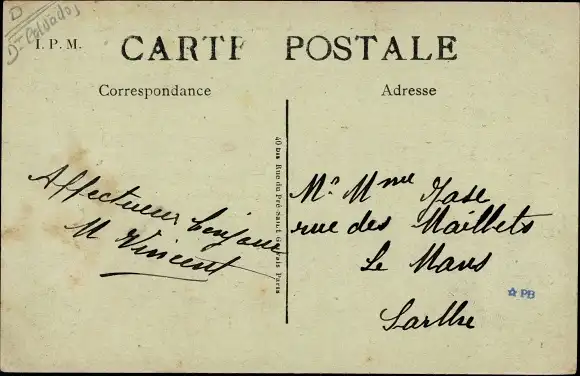 D
I. P. M.
CARTE POSTALE
Correspondance
Adresse
Affectueux bonjour
M Vincent
40 bis Rue du Pré-Saint Gervais Paris
Mr Mme
rue des Maillets
Le Mans
Sarthe
PB